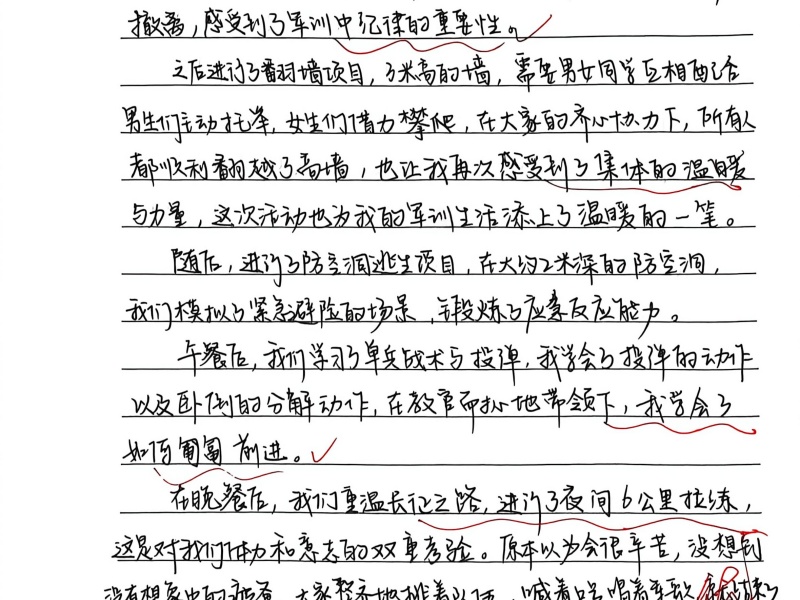 撤离，感受到了军训中纪律的重要性。
之后进行了翻墙项目，3米高的墙，需要男女同学互相配合
男生们主动托举，女生们借力攀爬，在大家的齐心协力下，所有人
都顺利翻越了高墙，也让我再次感受到了集体的温暖
与力量，这次活动也为我的军训生活添上了温暖的一笔。
随后，进行了防空洞逃生项目，在大约2米深的防空洞，
我们模拟了紧急避险的场景，锻炼了应急反应能力。
午餐后，我们学习了单兵战术与投弹，我学会了投弹的动作
以及卧倒的分解动作，在教官的带领下，我学会了
如何匍匐前进。
在晚餐后，我们重温长征之路，进行了夜间6公里拉练，
这是对我们体力和意志的双重考验。原本以为会很辛苦，没想到
没有想象中的疲惫，大家整齐地排着队伍，喊着口号唱着军歌